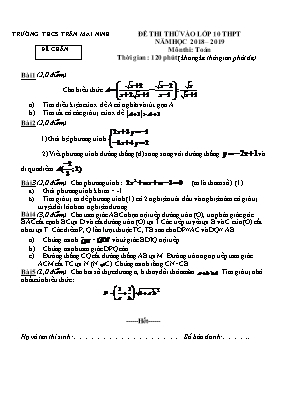 TRƯỜNG THCS TRẦN MAI NINH
ĐỀ THI THỬ VÀO LỚP 10 THPT
NĂM HỌC 2018 – 2019
ĐỀ CHẴN
Môn thi: Toán
Thời gian: 120 phút (không kể thời gian phát đề)
Bài 1 (2,0 điểm).
Cho biểu thức
a) Tìm điều kiện của x để A có nghĩa và rút gọn A
b) Tìm tất cả các giá trị của x để
Bài 2 (2,0 điểm).
1) Giải hệ phương trình
2) Viết phương trình đường thẳng (d) song song với đường thẳng y = −2x+1 và
đi qua điểm
Bài 3 (2,0 điểm) Cho phương trình: (m là tham số) (1)
a) Giải phương trình khi m = -1
b) Tìm giá trị m để phương trình (1) có 2 nghiệm trái dấu và nghiệm âm có giá trị
tuyệt đối lớn hơn nghiệm dương.
Bài 4 (3,0 điểm). Cho tam giác ABC nhọn nội tiếp đường tròn (O), tia phân giác góc
BAC cắt BC tại D và cắt đường tròn (O) tại T. Các tiếp tuyến tại B và C của (O) cắt
nhau tại T. Các điểm P, Q lần lượt thuộc TC, TB sao cho DP//AC và DQ//AB
a) Chứng minh và tứ giác BDTQ nội tiếp
b) Chứng minh tam giác DPQ cân
c) Đường thẳng CQ cắt đường thẳng AB tại M. Đường tròn ngoại tiếp tam giác
ACM cắt TC tại N (N ≠ C). Chứng minh rằng CN = CB
Bài 5 (1,0 điểm). Cho hai số thực dương a, b thay đổi thỏa mãn Tìm giá trị nhỏ
nhất của biểu thức:
------Hết------
Họ và tên thí sinh: Số báo danh: